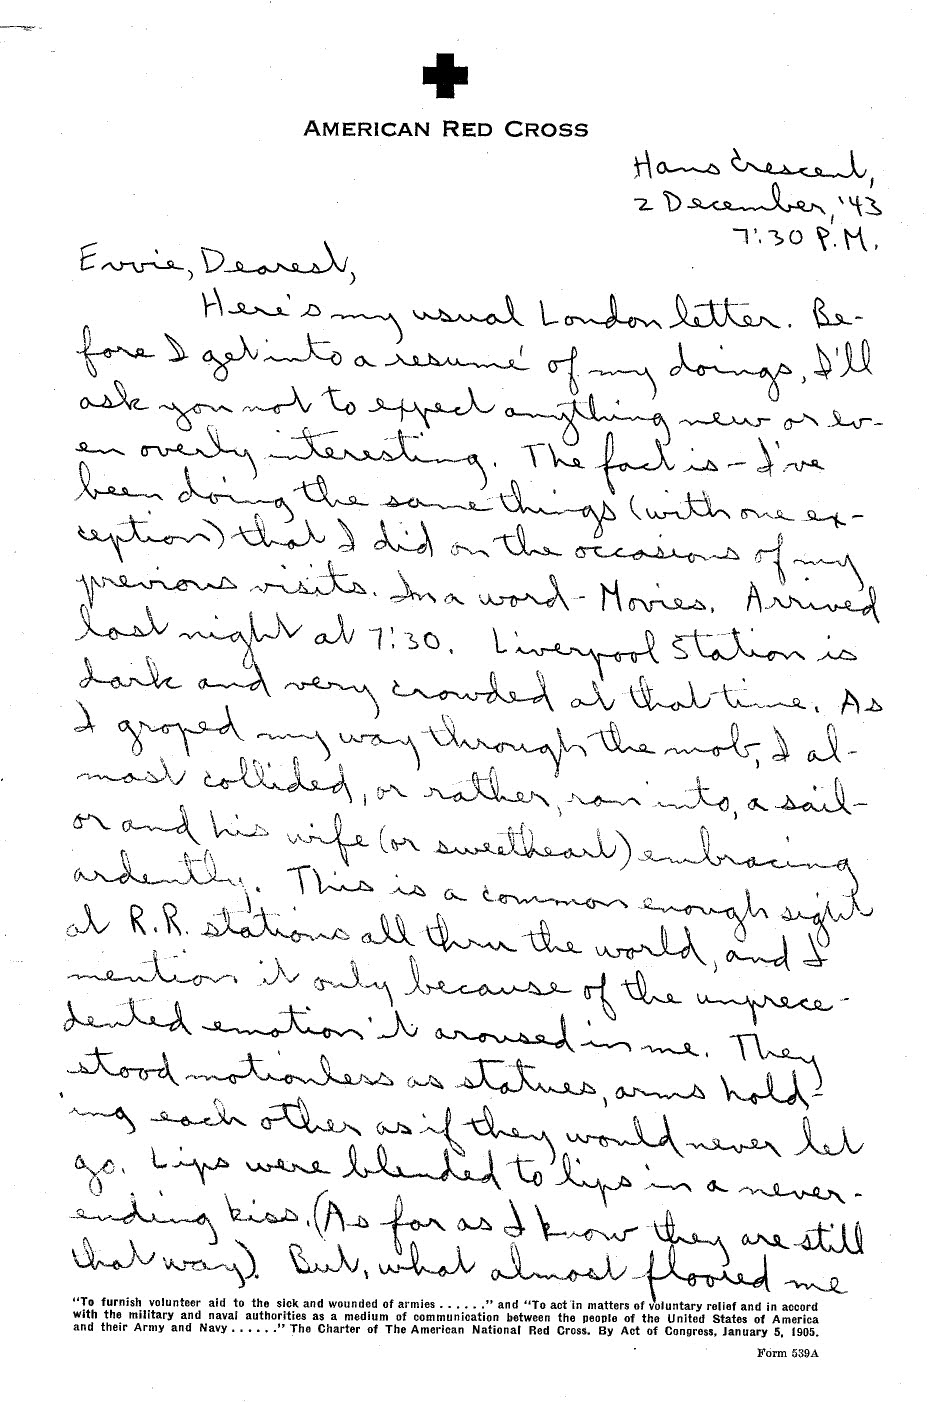 AMERICAN RED CROSS
Hans Crescent,
2 December, '43
7:30 P.M.
Evvie, Dearest,
Here's my usual London letter. Be-
fore I get into a resumé of my doings, I'll
ask you not to expect anything new or ev-
en overly interesting. The fact is - I've
been doing the same things (with one ex-
ception) that I did on the occasions of my
previous visits. In a word - Movies. Arrived
last night at 7:30. Liverpool Station is
dark and very crowded at that time. As
I groped my way through the mob, I al-
most collided, or rather, ran into, a sail-
or and his wife (or sweetheart) embracing
ardently. This is a common enough sight
at R.R. stations all thru the world, and I
mention it only because of the unprece-
dented emotion it aroused in me. They
stood motionless as statues, arms hold-
ing each other as if they would never let
go. Lips were blended to lips in a never-
ending kiss. (As far as I know they are still
that way). But, what almost floored me
"To furnish volunteer aid to the sick and wounded of armies ......" and "To act in matters of voluntary relief and in accord
with the military and naval authorities as a medium of communication between the people of the United States of America
and their Army and Navy ......" The Charter of The American National Red Cross. By Act of Congress, January 5, 1905.
Form 539A